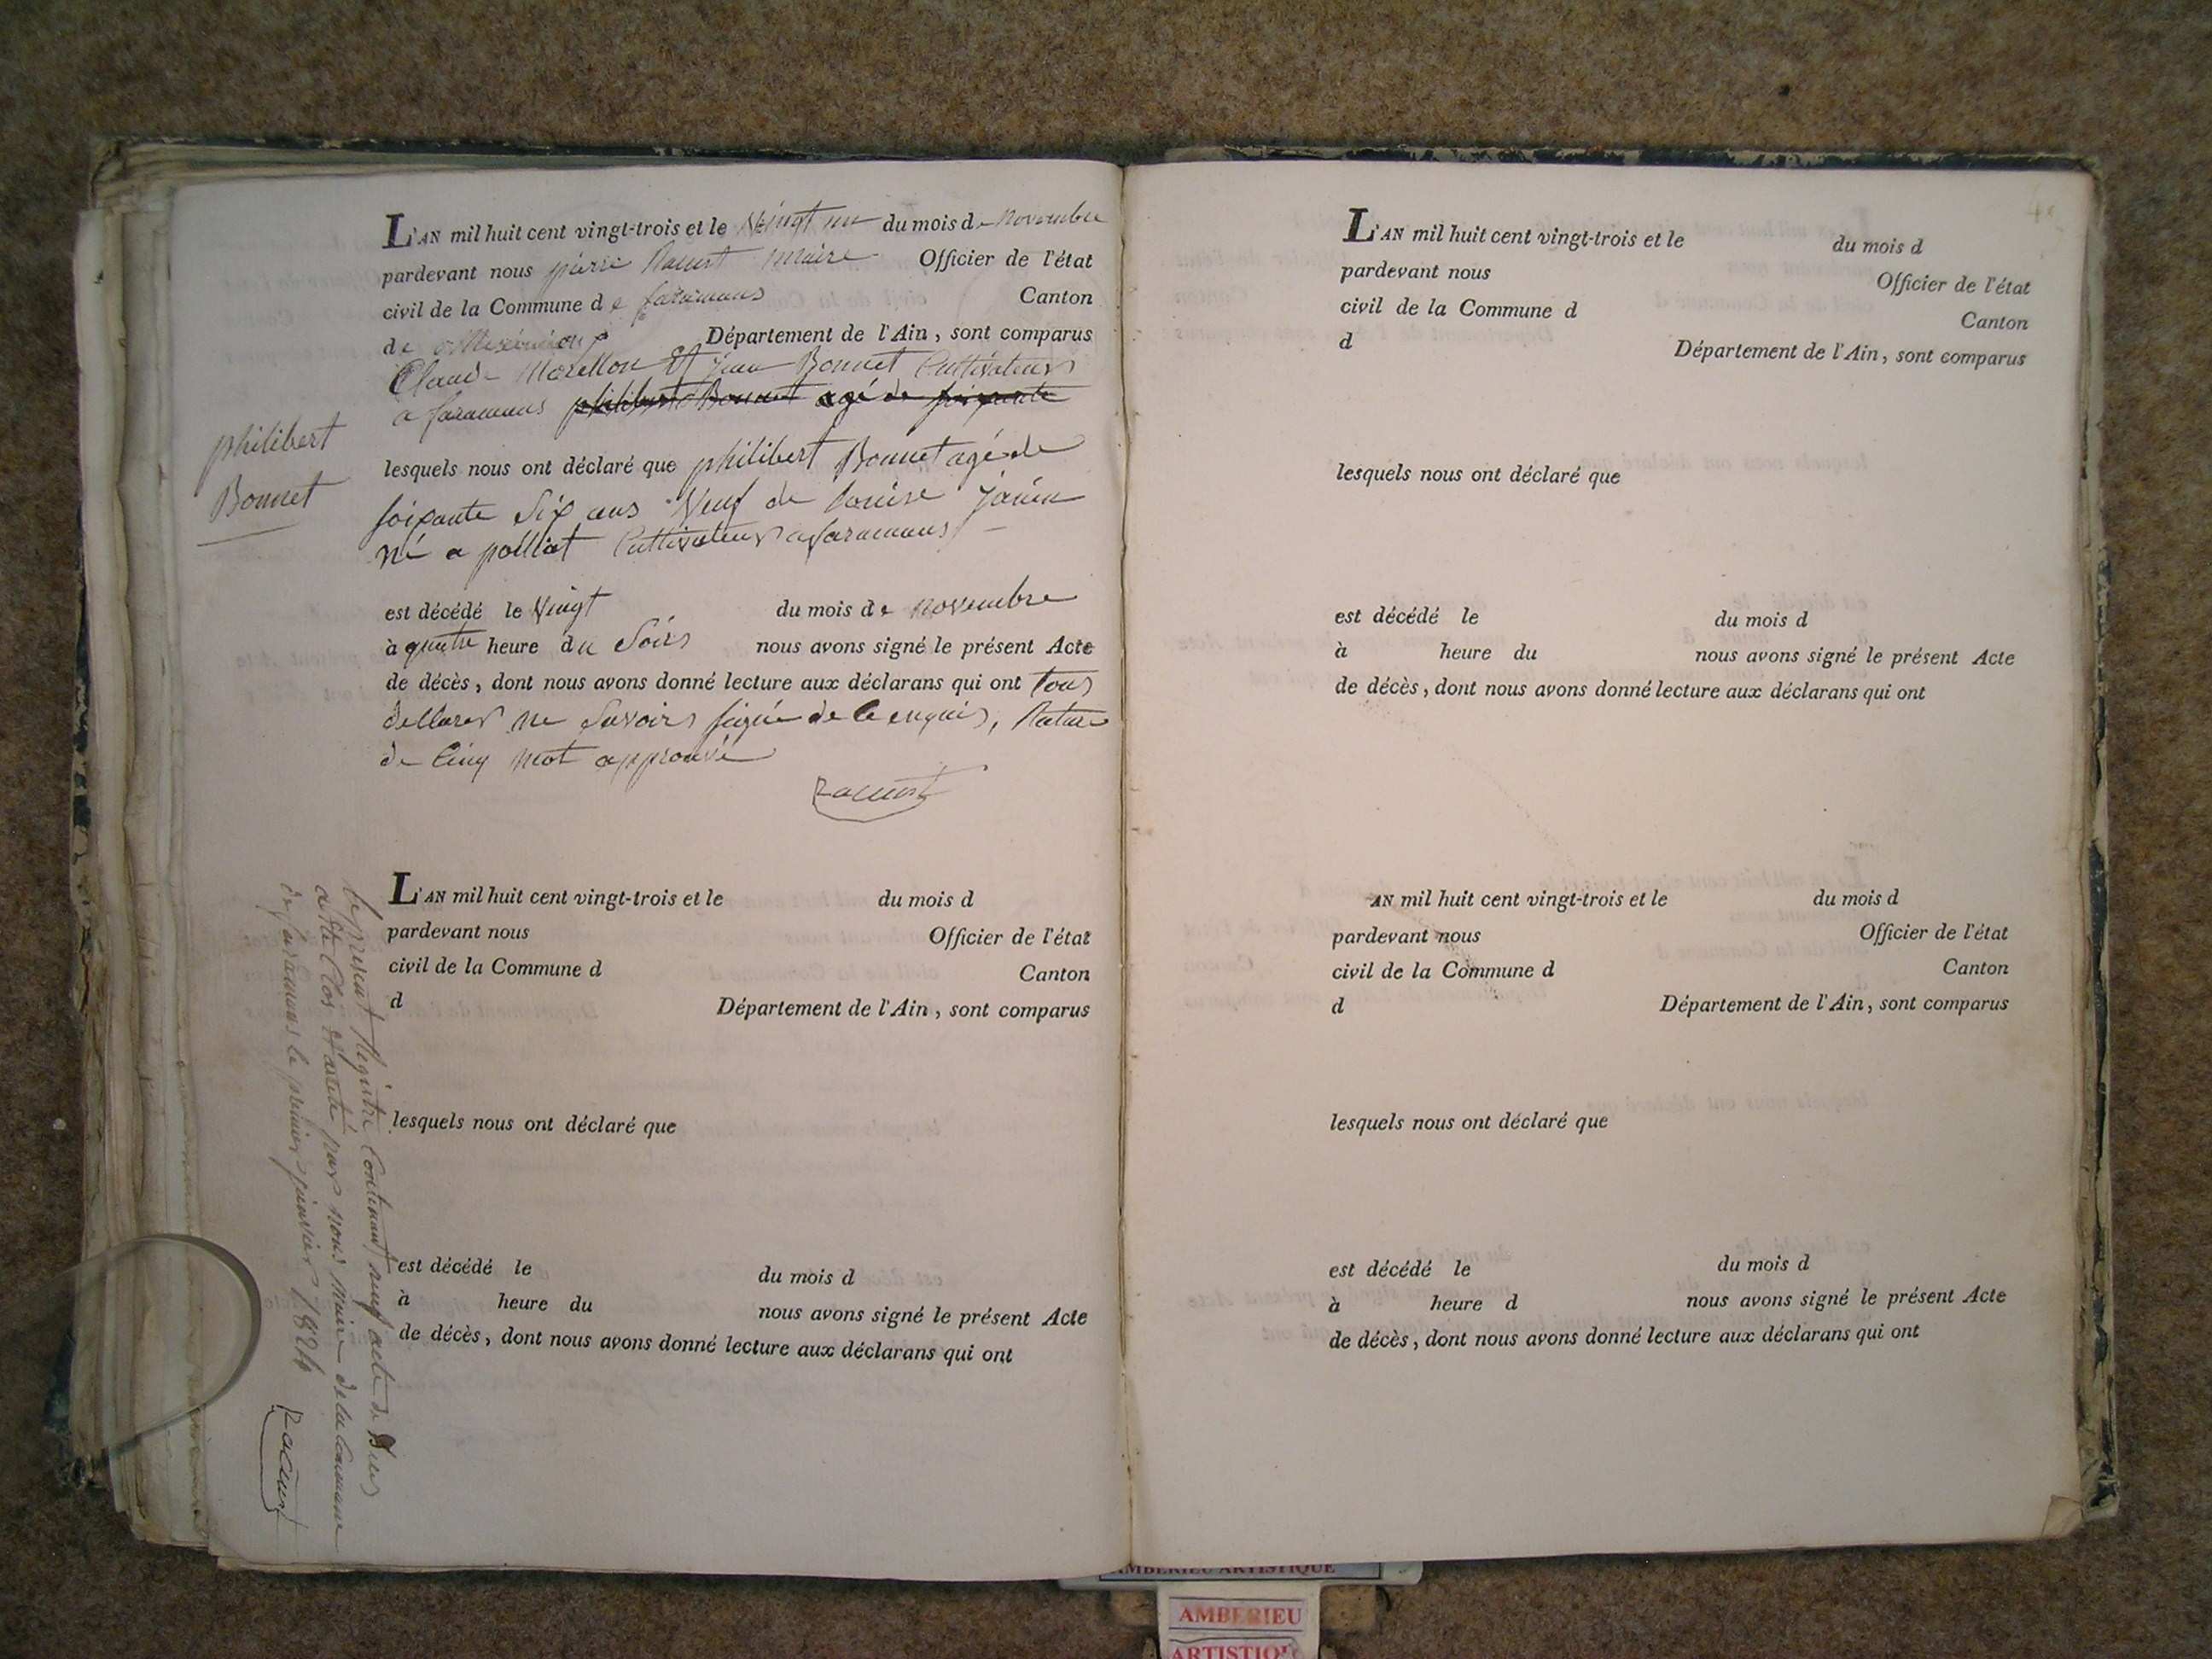 L'AN mil huit cent vingt-trois et le Vingt un du mois de novembre
pardevant nous pierre maire Officier de l'état
civil de la Commune de faramans Canton
de Département de l'Ain, sont comparus
Claude Morellon Et jean Bonnet Cultivateurs
a faramans philibert Bonnet agé de soixante
philibert
Bonnet
lesquels nous ont déclaré que philibert Bonnet agé de
soixante Six ans Veuf de Louise Janin
né a polliat Cultivateur a faramans
est décédé le Vingt du mois de novembre
à quatre heure du Soirs nous avons signé le présent Acte
de décès, dont nous avons donné lecture aux déclarans qui ont tous
de Cinq mot approuvé
L'AN mil huit cent vingt-trois et le du mois d
pardevant nous Officier de l'état
civil de la Commune d Canton
d Département de l'Ain, sont comparus
lesquels nous ont déclaré que
est décédé le du mois d
à heure du nous avons signé le présent Acte
de décès, dont nous avons donné lecture aux déclarans qui ont
le présent Registre Contenant neuf acte de
a été Clos et areté par nous maire de la Commune
de faramans le premier janvier 1824
L'AN mil huit cent vingt-trois et le du mois d
pardevant nous Officier de l'état
civil de la Commune d Canton
d Département de l'Ain, sont comparus
lesquels nous ont déclaré que
est décédé le du mois d
à heure du nous avons signé le présent Acte
de décès, dont nous avons donné lecture aux déclarans qui ont
AN mil huit cent vingt-trois et le du mois d
pardevant nous Officier de l'état
civil de la Commune d Canton
d Département de l'Ain, sont comparus
lesquels nous ont déclaré que
est décédé le du mois d
à heure d nous avons signé le présent Acte
de décès, dont nous avons donné lecture aux déclarans qui ont
AMBERIEU ARTISTIQUE
AMBERIEU
ARTISTIQUE